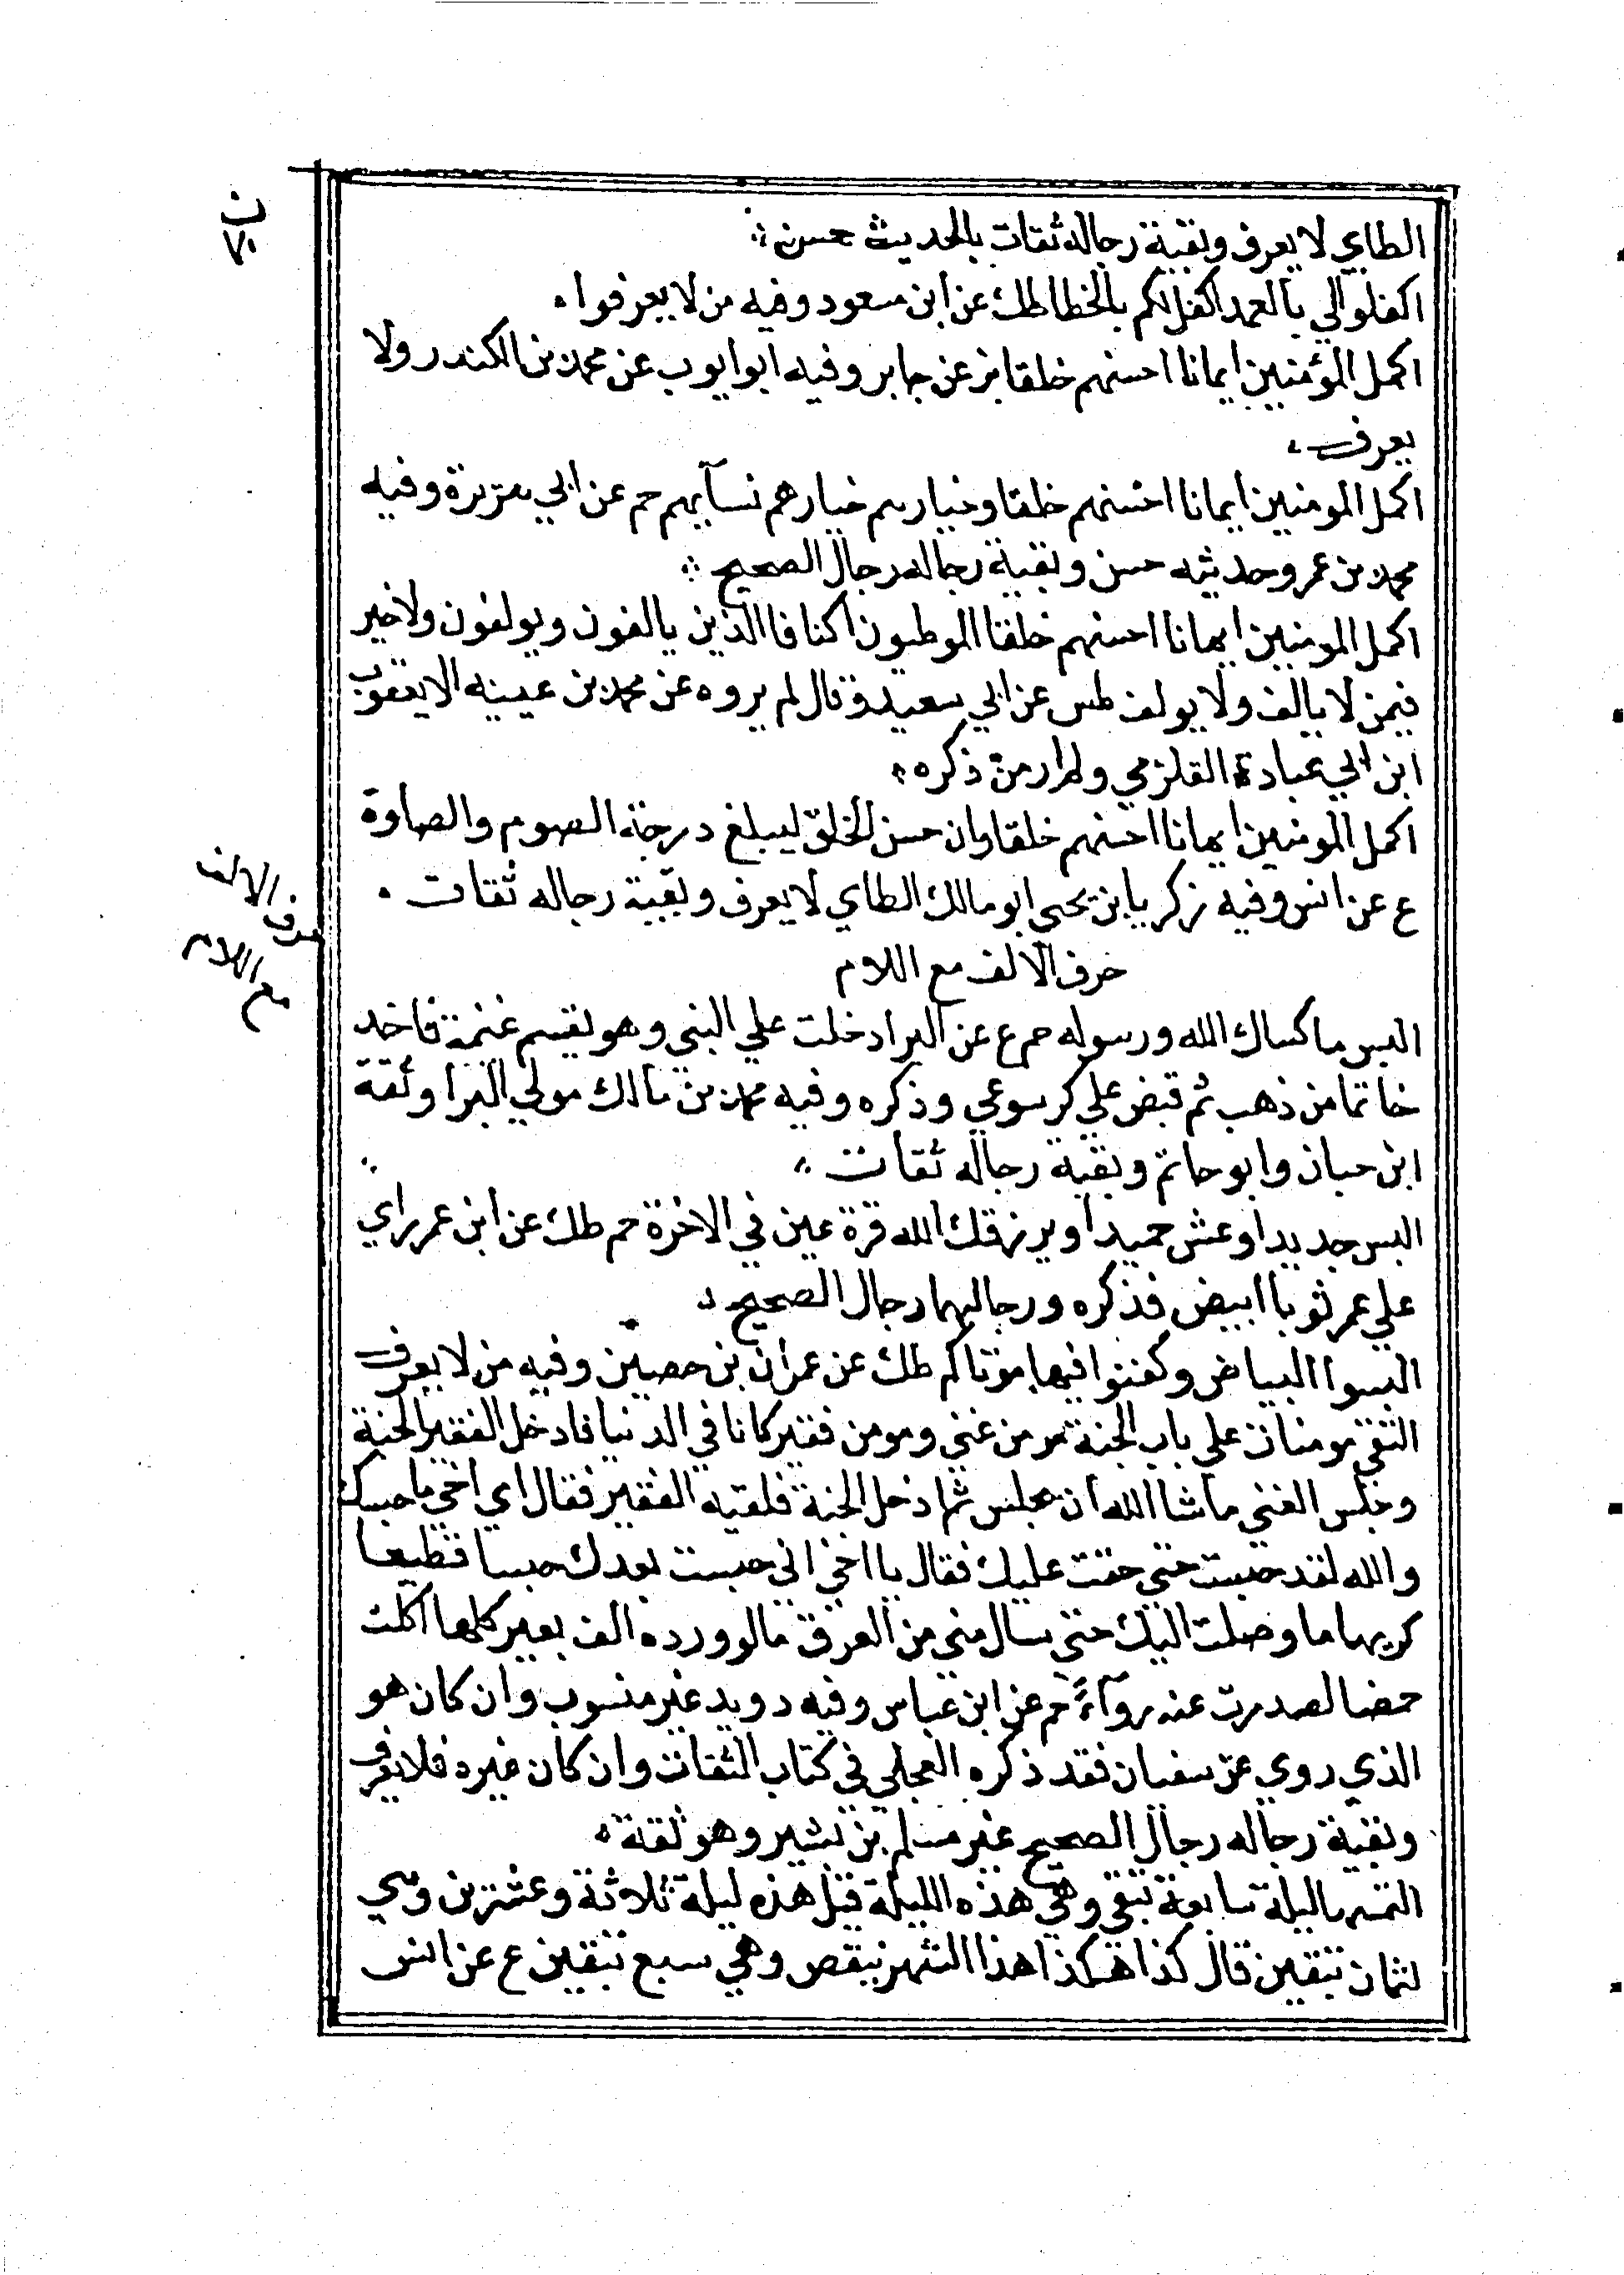 الطاي لا يعرف وبقية رجاله ثقات بالحديث حسن
اكفلوا لي بالعمد اكفل لكم بالخطا طك عن ابن مسعود وفيه من لا يعرفوا
اكمل المؤمنين ايمانا احسنهم خلقا بز عن جابر وفيه ابو ايوب عن محمد بن المكندر ولا
يعرف
اكمل المومنين ايمانا احسنهم خلقا وخيارهم خيارهم نسآيهم حم عن ابي هريرة وفيه
محمد بن عمرو وحديثه حسن وبقية رجاله رجال الصحيح
اكمل المومنين ايمانا احسنهم خلقا الموطيون اكنافا الذين يالفون ويولفون ولا خير
فيمن لا يالف ولا يولف طس عن ابي سعيد وقال لم يروه عن محمد بن عيينه الا يعقوب
ابن ابي عبادة القلزمي ولم ار من ذكره
اكمل المومنين ايمانا احسنهم خلقا وان حسن الخلق ليبلغ درجة الصوم والصلوة
ع عن انس وفيه زكريا بن يحيى ابو مالك الطاي لا يعرف وبقية رجاله ثقات
حرف الالف مع اللام
حرف الالف
مع اللام
البس ما كساك الله ورسوله حم ع عن البرا دخلت علي النبي وهو يقسم غنمة فاخد
خاتما من ذهب ثم قبض علي كرسوعي وذكره وفيه محمد بن مالك مولي البرا وثقة
ابن حبان وابو حاتم وبقية رجاله ثقات
البس جديدا وعش حميدا ويرزقك الله قرة عين في الاخرة حم طك عن ابن عمر راي
علي عمر ثوبا ابيض فذكره ورجالهما رجال الصحيح
البسوا البياض وكفنوا فيها موتاكم طك عن عمران بن حصين وفيه من لا يعرف
التقي مومنان علي باب الجنة مومن غني ومومن فقير كانا في الدنيا فادخل الفقير الجنة
وجلس الغني ما شا الله ان يجلس ثم ادخل الجنة فلقيه الفقير فقال اي اخي ما حبسك
والله لقد حبست حتي خفت عليك فقال يا اخي اني حبست بعدك حبسا فظيعا
كريها ما وصلت اليك حتي سال مني من العرق ما لو ورده الف بعير كلها اكلت
حمضا لصدرت عنه روآءً حم عن ابن عباس وفيه دويد غير منسوب وان كان هو
الذي روي عن سفيان فقد ذكره العجلي في كتاب الثقات وان كان غيره فلا يعرف
وبقية رجاله رجال الصحيح غير مسلم بن بشير وهو ثقة
التمسوا ليلة سابعة تبقي وهي هذه الليلة قيل هذه ليلة ثلاثة وعشرين وهي
لثمان تبقين قال كذا هكذا هذا الشهر ينقص وهي سبع تبقين ع عن انس